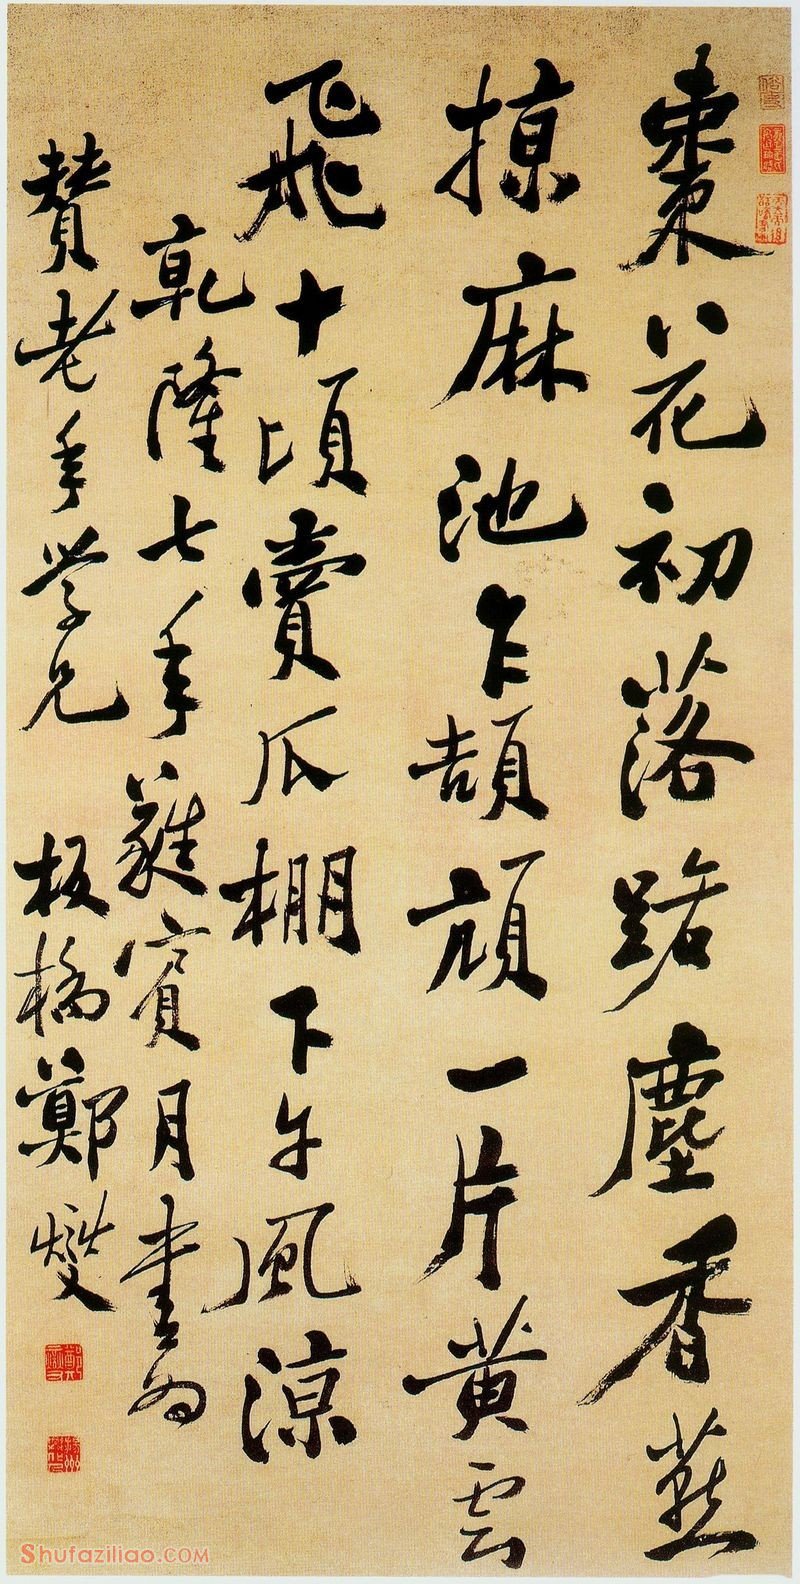 棗花初落路塵香燕
掠麻池乍頡頏一片黃雲
飛十頃賣瓜棚下午風涼
乾隆七年蕤賓月書為
贊老年學兄 板橋鄭燮
Shufaziliao.COM